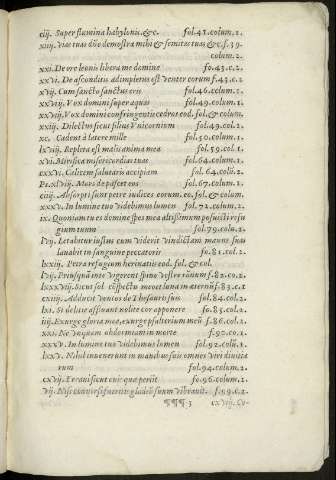 ciij. Super flumina babylonis.&c. fol.41.colum.2.
xiiij. Vias tuas dñe demostra mihi & semitas tuas &c.f.39.
colum.2.
xxi. De ore leonis libera me domine fo.43.c.2.
xxvi. De absconditis adimpletus est venter eorum f.43.c.2
xvij. Cum sancto sanctus eris fol.46.colum.2.
xxviij. Vox domini super aquas fol.49.colum.1.
xxvij. Vox domini confringentis cedros eod. fol.& colum.
xxiij. Dilectus sicut filius Vnicornium fol.49.col.2.
xc. Cadent à latere mille fol.50.colum.1.
lxviij. Repleta est malis anima mea fol.59.col.1.
xvi. Mirifica misericordias tuas fol.64.colum.1.
cxv. Calicem salutaris accipiam fol.64.colum.2.
Ps.xlviij. Mors depascet eos fol.67.colum.1.
ciiij. Absorpti sunt petre iudices eorum. eo. fol.& colum.
xxxv. In lumine tuo videbimus lumen fol.72.colum.2.
ix. Quoniam tu es domine spes mea altissimum posuisti refu
gium tuum fol.79.colu.2.
lvij. Letabitur iustus cum viderit vindictam manus suas
lauabit in sanguine peccatoris fo.81.col.2.
lxxij. Petra refugium herinatiis eod. fol.& col.
lvij. Priusquã intelligerent spine vestre rãnum f.82.co.2.
lxxxviij. Sicut sol cõspectu meo et luna in æternũ f.83.c.1
cxiiij. Adducit ventos de Thesauris suis fol.84.col.2.
lxi. Si delitiæ affluant nolite cor apponere fo.85.col.2.
iij. Exurge gloria mea, exurge psalterium meũ f.86.col.2.
xxi. Ne vnquam obdormiam in morte f.90.co.1.
xxxv. In lumine tuo videbimus lumen fol.92.colũ.1.
lxxv. Nihil inuenerunt in manibus suis omnes viri diuitia
rum fol.94.colum.2.
xxvij. Ps. euis cui: quæ periit fo.96.colum.2.
vij. Nisi conuersi fueritis gladiũ suum vibrauit. f.99.c.2.
¶¶¶.3 lxviij. Co-